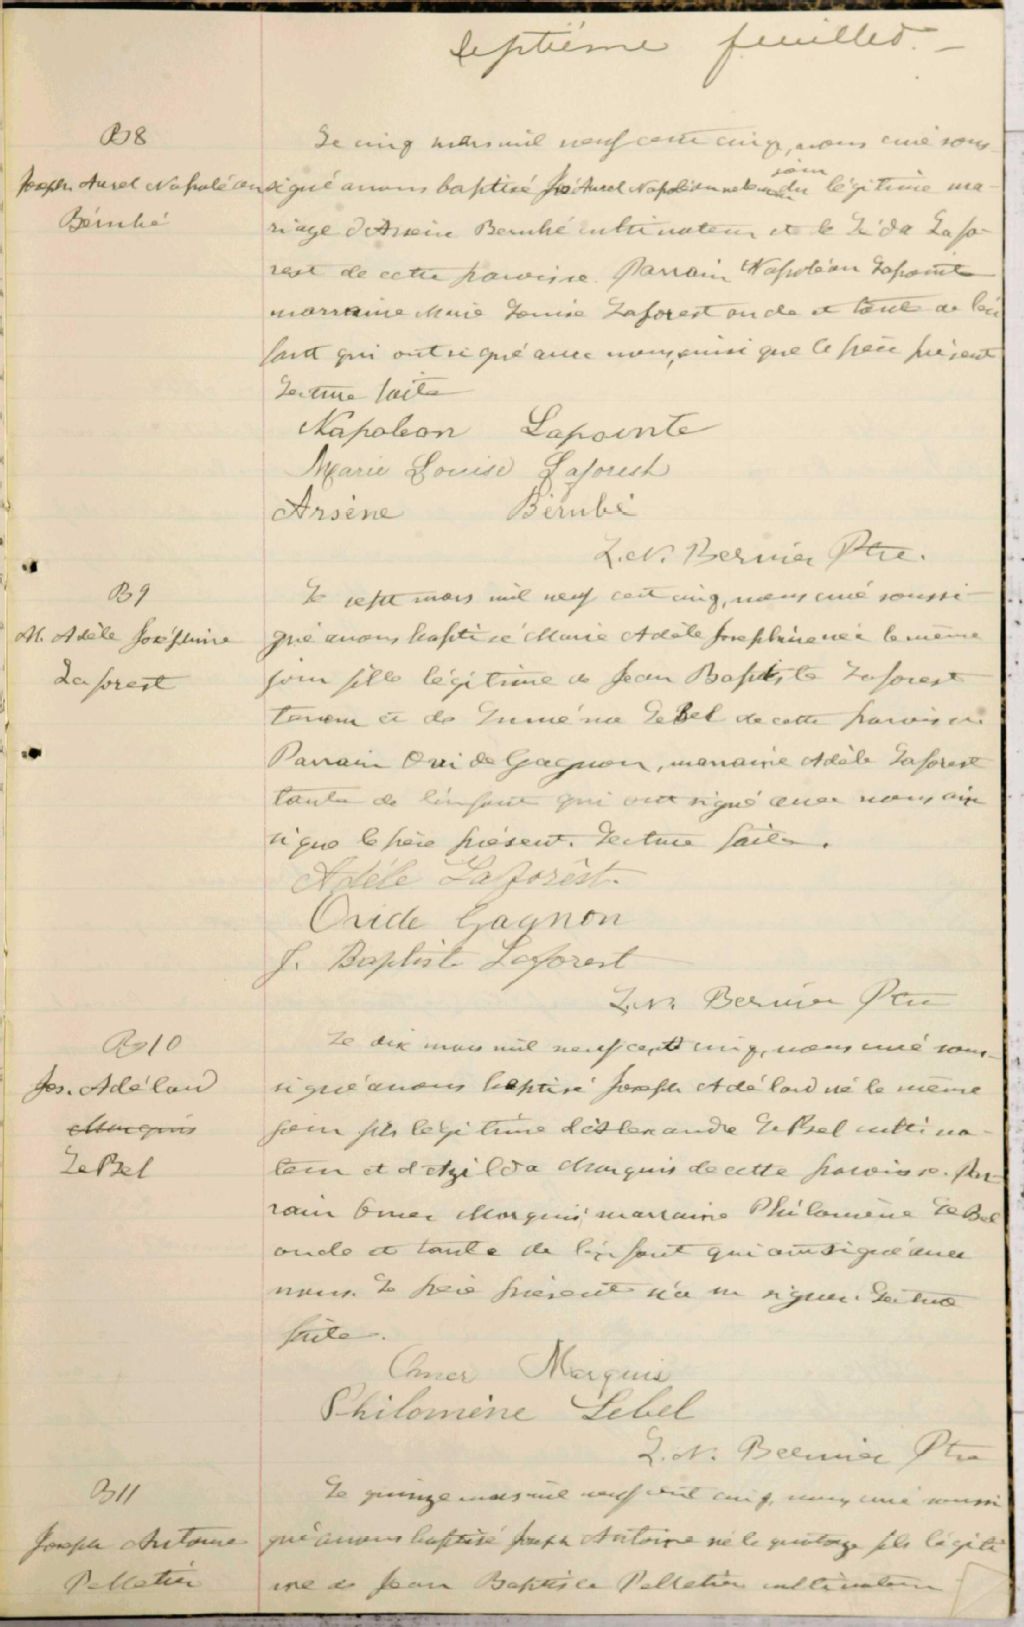 Septième feuillet.
B8
Joseph Aurel Napoléon
Bérubé
Le cinq mars mil neuf cent cinq, nous curé sous-
signé avons baptisé Jos Aurel Napoléon né le jour du légitime ma-
riage d'Arsène Berubé cultivateur et de Léda Lafo-
rest de cette paroisse. Parrain Napoléon Lapointe
marraine Marie Louise Laforest oncle et tante de l'en
fant qui ont signé avec nous, ainsi que le père présent
Lecture faite
Napoleon Lapointe
Marie Louise Laforest
Arsène Bérubé
L.N. Bernier Ptre.
B9
M. Adèle Joséphine
Laforest
Le sept mars mil neuf cent cinq, nous curé soussi-
gné avons baptisé Marie Adèle Josephine née le même
jour fille légitime de Jean Baptiste Laforest
et de LeBel de cette paroisse
Parrain Ovide Gagnon, marraine Adèle Laforest
tante de l'enfant qui ont signé avec nous ain
si que le père présent. Lecture faite.
Adèle Laforest.
Ovide Gagnon
J. Baptiste Laforest
L.N. Bernier Ptre
B10
Jos. Adélard
Marquis
LeBel
Le dix mars mil neuf cent cinq, nous curé sous-
signé avons baptisé Joseph Adélard né le même
jour fils légitime d'Alexandre LeBel cultiva-
teur et d'Azilda Marquis de cette paroisse. Par-
rain Omer Marquis, marraine Philomène LeBel
oncle et tante de l'enfant qui ont signé avec
nous. Le père présent n'a su signer. Lecture
faite.
Omer Marquis
Philomène Lebel
L.N. Bernier Ptre
B11
Joseph Antoine
Pelletier
Le quinze mars mil neuf cent cinq, nous curé soussi
gné avons baptisé Joseph Antoine né le quatorze fils légiti
me de Jean Baptiste Pelletier cultivateur